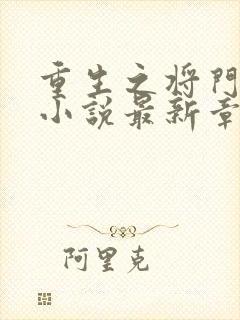 重生之将門
小説最新章
阿里克